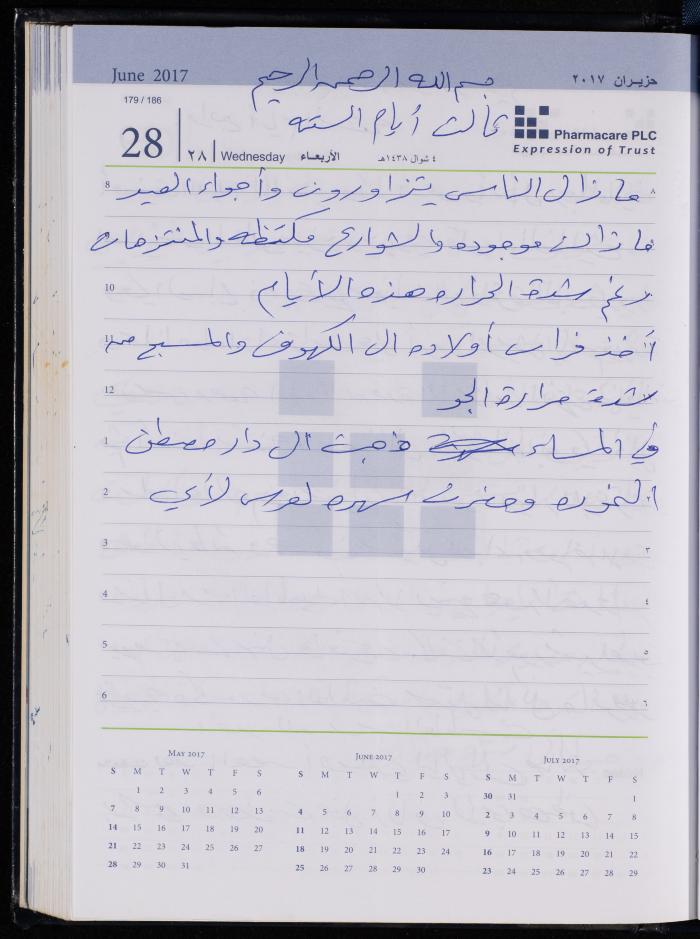 June 2017
بسم الله الرحمن الرحيم
حزيران ٢٠١٧
179 / 186
ثالث أيام السته
28 | ٢٨ | Wednesday الأربعاء
٤ شوال ١٤٣٨هـ
Pharmacare PLC
Expression of Trust
8 ما زال الناس يتزاورون وأجواء العيد ٨
ما زالت موجوده والشوارع مكتظه والمنتزهات
10 رغم شدة الحراره هذه الأيام
11 أخذ فراس أولاده ال الكهوف والمسبح من
12 شدة حرارة الجو
1 في المساء ذهبت ال دار مصطفى
2 الخوره وحضرت سهره لعرس لأي
3 ٣
4 ٤
5 ٥
6 ٦
MAY 2017
S M T W T F S
1 2 3 4 5 6
7 8 9 10 11 12 13
14 15 16 17 18 19 20
21 22 23 24 25 26 27
28 29 30 31
JUNE 2017
S M T W T F S
1 2 3
4 5 6 7 8 9 10
11 12 13 14 15 16 17
18 19 20 21 22 23 24
25 26 27 28 29 30
JULY 2017
S M T W T F S
30 31 1
2 3 4 5 6 7 8
9 10 11 12 13 14 15
16 17 18 19 20 21 22
23 24 25 26 27 28 29